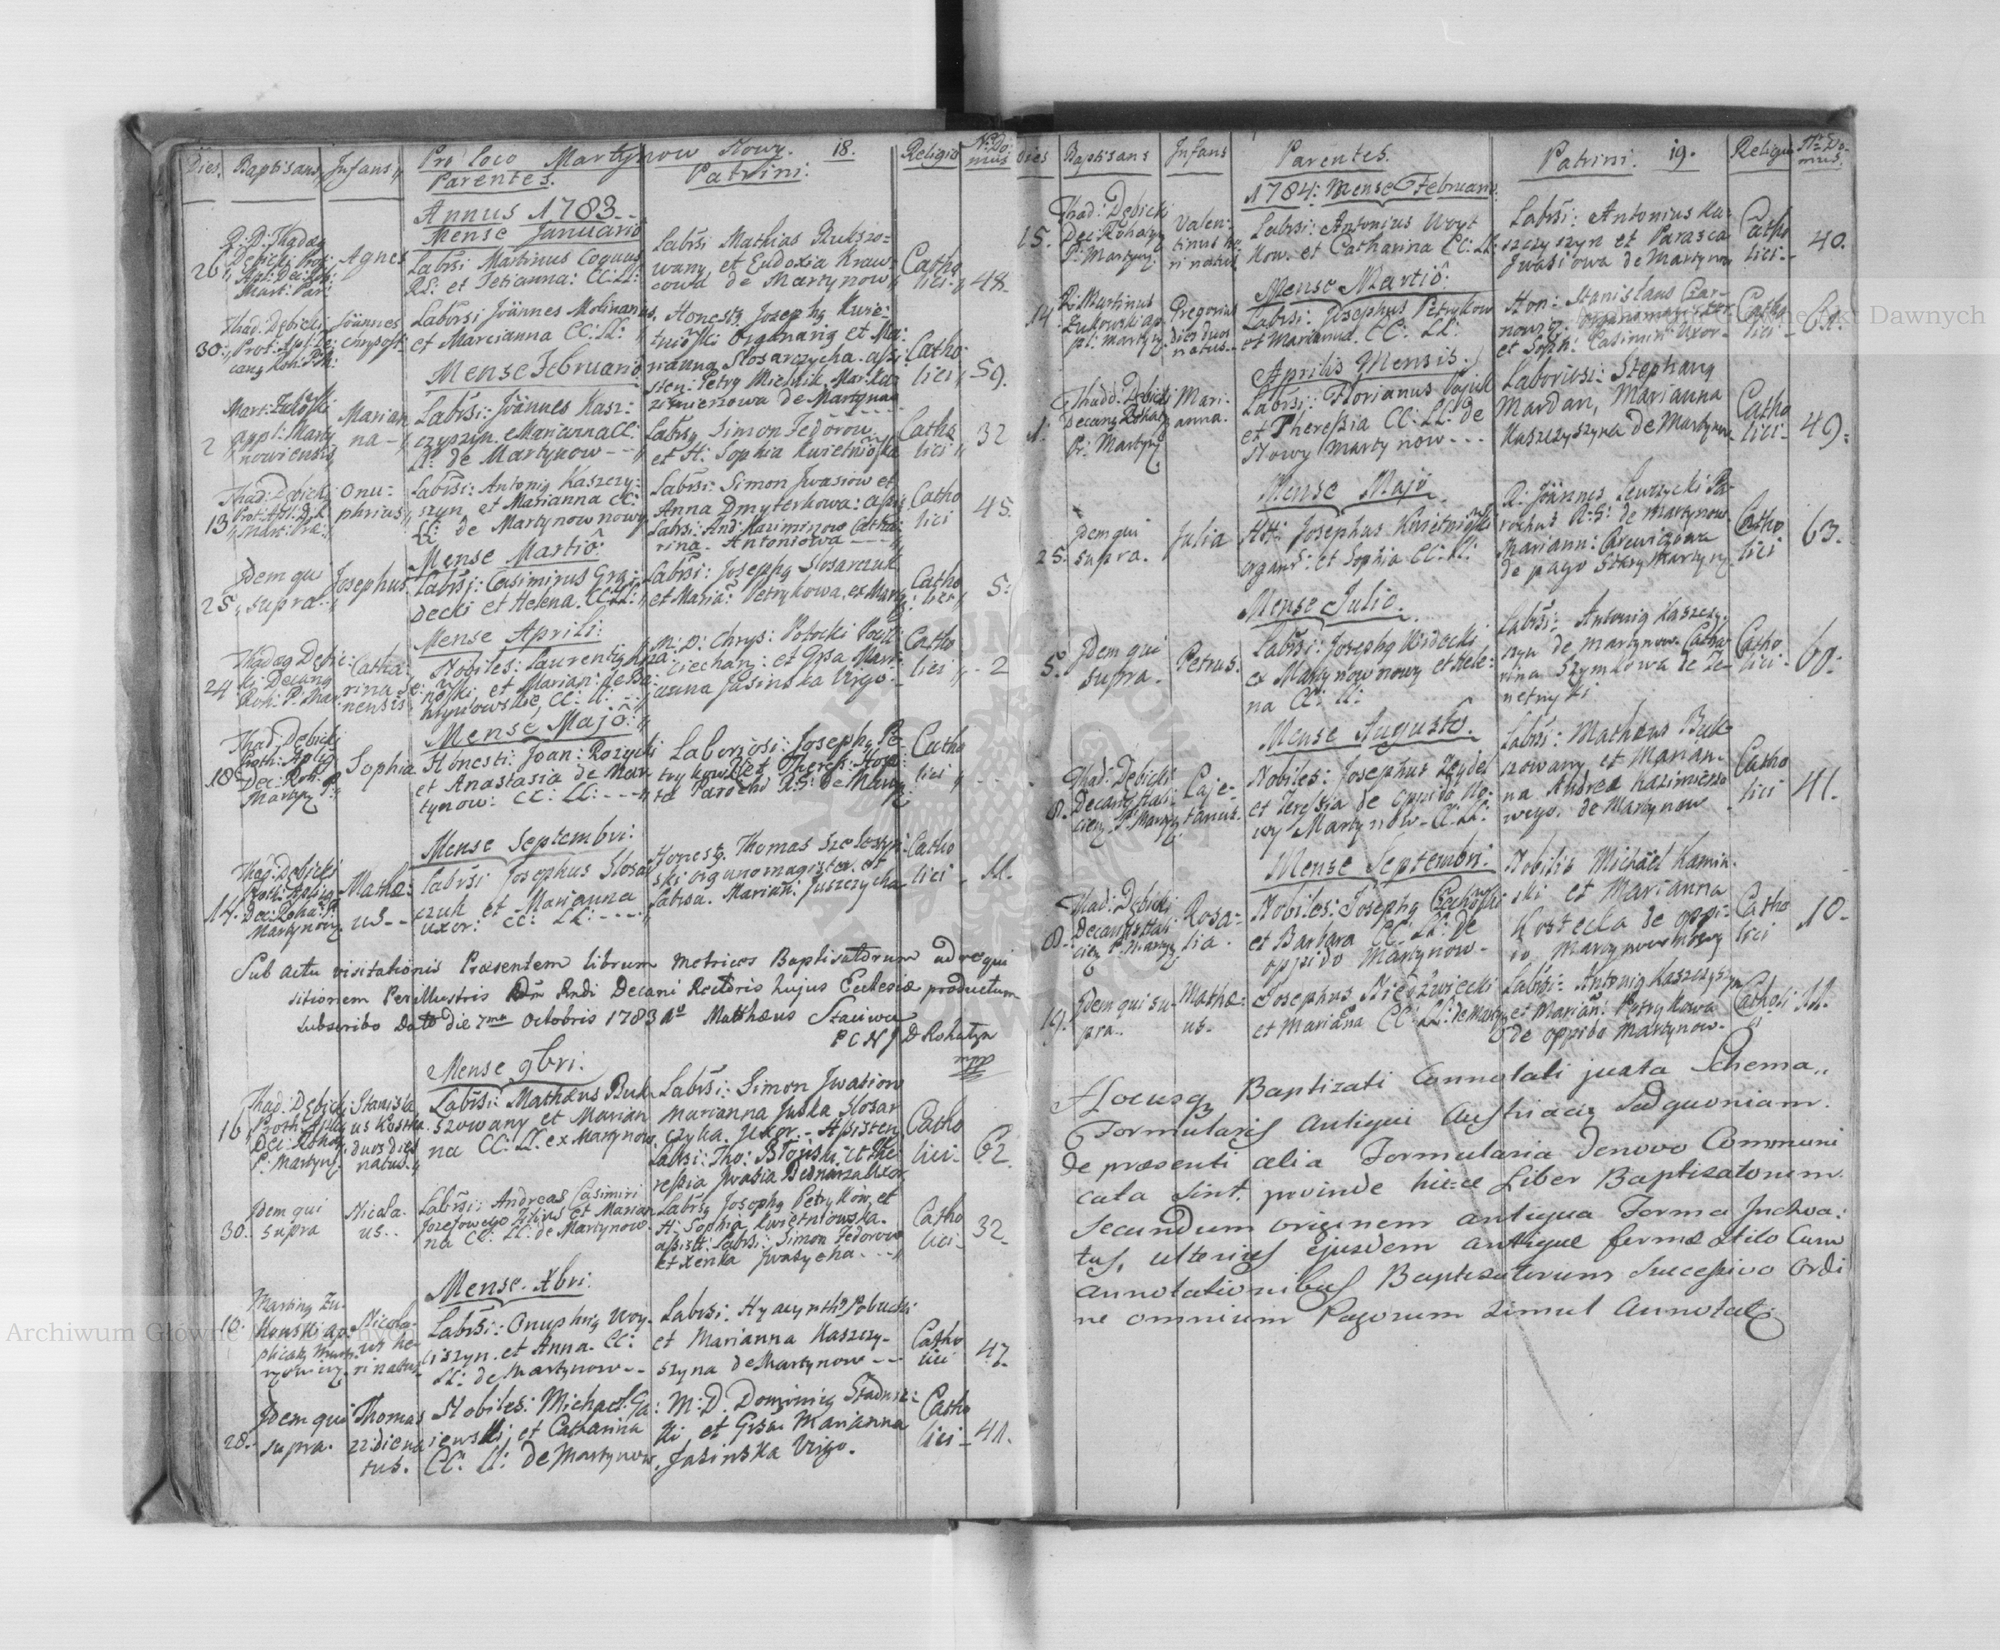 Dies. Baptisans, Infans, Pro Loco Martynow Nowy. 18. Religio No. Domus
Parentes. Patrini.
Annus 1783
Mense Januario
26 R: D: Thadæg Dębicki Prot: Apl: Dec: Roh: Mart: Par:
Agnes
Labrsi Martinus Coquus RS: et Tetianna: CC: LL:
Labrsi Mathias Rukszowany, et Eudoxia Krawcowa de Martynow
Catholici 48.
30. Thad: Dębicki Prot: Apl: Decang Roh: P: M:
Joannes Chrysost.
Labrsi Joannes Molinarius et Marcianna CC: LL:
Honestg Josephg Kwietniowski Organarig et Marianna Slosarczycha. assisten: Petrg Mielnik, Mar: Kazimierzowa de Martynow
Catholici 59.
Mense Februario
2 Mart: Zukowski appl: Martynoviensis
Marianna
Labrsi: Joannes Kaszczyszyn. et Marianna CC: LL: de Martynow
Labrsg Simon Fedorow et H: Sophia Kwietniowska
Catholici 32
13 Thad: Dębicki Prot: Apl: D: R: Mart: Præ:
Onuphrius
Labrsi: Antonig Kaszczyszyn et Marianna CC: LL: de Martynow nowy
Labrsi: Simon Jwasiow et Anna Dmyterkowa: assis Labrsi: And: Maximinow Catharina Antoniowa
Catholici 45.
Mense Martio
25 Jdem qui supra
Josephus
Labrsi: Casimirus Gradecki et Helena. CC: LL:
Labrsi: Josephg Slosarczuk et Maria: Petrykowa, ex Martyn:
Catholici 5.
Mense Aprili:
24 Thadæg Dębicki Decang Roh: P: Mar
Catharina
Nobiles: Laurentig et Marian: CC: LL:
M: D: Chrys: Potocki et Gsa Marianna Jasinska Virgo
Catholici 2
Mense Majo:
18 Thad: Dębicki Proth: Aplig Dec: Roh: Martyn P:
Sophia
Honesti: Joan: Rozycki et Anastasia de Martynow: CC: LL:
Laboriosi: Josephg Petrykow et Theres: Parochi R: S: de Martyn
Catholici
Mense Septembri:
14. Thad: Dębicki Proth: Aplig Dec: Roha: P: Martynov
Mathæus
Labrsi Josephus Slosarczuk et Marianna uxor: CC: LL:
Honestg. Thomas Szelozynski organomagister et Labrsa. Mariañ: Juszczycha
Catholici 11.
Sub actu visitationis Præsentem librum Metrices Baptisatorum ad requi
sitionem Perillustris Dni Rndi Decani Rectoris hujus Ecclesiæ productum
subscribo Dato die 7ma Octobris 1783 Ao Matthæus Staiwa
P C N J D Rohatyn
mpp
Mense 9bri.
16 Thad: Dębicki Proth: Aplig Dec: Rohat: P: Martyn:
Stanislaus Kostka duos dies natus
Labrsi: Mathæus Bukszowany et Marianna CC: LL: ex Martynow.
Labrsi: Simon Jwasiow Marianna Juska Slosarczyka. Uxor. Assisten Labrsi: Tho: Bloński et Theressia Jwasia Bednarza Uxor,
Catholici 62.
30. Jdem qui supra
Nicolaus
Labrsi: Andreas Casimiri Jozefowego Filius et Marianna CC: LL: de Martynow.
Labrsg Josephg Petrykow, et H: Sophia Kwietniowska. assist: Labrsi: Simon Fedorow et Xenka Jwasycha
Catholici 32.
Mense Xbri:
10. Marting Zukowski applicatg Martynovieñ
Nicolaus heri natus
Labrsi: Onuphrig Woyciszyn. et Anna. CC: LL: de Martynow
Labrsi: Hyacynthg Pobucki et Marianna Kaszczyszyna de Martynow
Catholici 47.
28. Jdem qui supra.
Thomas 22 die natus.
Nobiles: Michael Gaiewski, et Catharina CC: LL: de Martynow.
M: D. Dominicg Stadnicki, et Gssa Marianna Jasinska Virgo.
Catholici 41.
Dies Baptisans Infans Parentes. Patrini. 19. Religio Nr. Domus.
1784: Mense Februario
15. Thad: Dębicki Dec: Rohatyn P: Martyn:
Valentinus heri natus
Labrsi: Antonius Woytkow. et Catharina CC: LL:
Labrsi: Antonius Kaszczyszyn et Parasca Jwasiowa de Martynow
Catholici 40.
Mense Martio:
14. R: Martinus Zukowski appl: Martyn:
Gregorius dies duos natus
Labrsi: Josephus Petrykow et Marianna CC: LL:
Hon: Stanislaus et Soph: Casimiri Uxor
Catholici 61.
Aprilis Mensis.
1. Thadd: Dębicki Decang Rohat: Pr: Martyn:
Marianna.
Labrsi: Florianus et Theressia CC: LL: de Nowy Martynow
Laboriosi: Stephang Mardan, Marianna Kaszczyszyna de Martynow
Catholici 49.
Mense Majo
25. Jdem qui supra.
Julia
Hti: Josephus Kwietniowski Organr: et Sophia CC: LL:
R: Joannes Lewszycki Parochus R: S: de Martynow Mariann: Carewiczowa de pago Stary Martyny
Catholici 63.
Mense Julio.
5. Jdem qui supra.
Petrus.
Labrsi: Josephg Wisłocki ex Martynow nowy et Helena CC: LL:
Labrsi: Antonig Kaszczyszyn de Martynow. Catharina Szymkowa de
Catholici 60.
Mense Augusto.
8. Thad: Dębicki Decang Halicien P: Martyn
Cajetanus.
Nobiles: Josephus Zeydel et Teressia de oppido Nowy Martynow. CC: LL:
Labrsi: Mathæus Bukszowany. et Marianna Andrea Kazimierzowego. de Martynow
Catholici 41.
Mense Septembri.
8. Thad: Dębicki Decang Halicien P: Martyn
Rosalia.
Nobiles: Josephg et Barbara CC: LL: de oppido Martynow.
Nobilis Michael Kaminski et Marianna Kostecka de oppido Martynow Nowy
Catholici 10.
19. Jdem qui supra.
Mathæus.
Josephus Niedzwiecki et Mariana CC: LL: de Martyn
Labrsi: Antonig Kaszczyszyn et Marian: Petrykowa de oppido Martynow.
Catholici 11.
Hocusq Baptizati Connotati juxta Schema
Formularis Antiqui Austriacig Sed quoniam.
de præsenti alia Formularia denovo Communi
cata sint, proinde hicce Liber Baptisatorum.
Secundum originem antiqua Forma Inchoa:
tus, ulterius ejusdem antiquæ formæ stilo Cum
annotationibus Baptisatorum Successivo Ordi
ne omnium Pagorum simul Annotatg
Archiwum Główne Akt Dawnych
Archiwum Główne Akt Dawnych